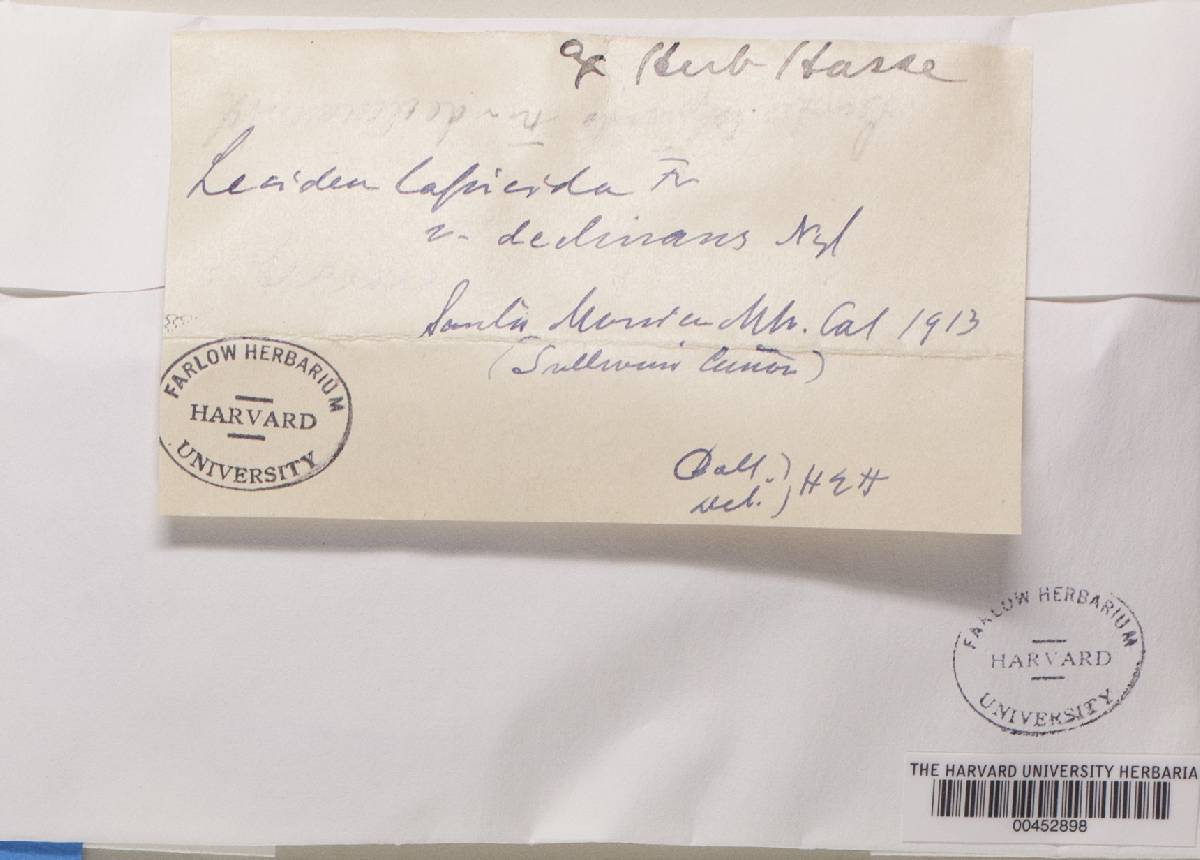 ex Herb Hasse
Lecidea lapicida Fr
v. declinans Nyl
Santa Monica Mts. Cal 1913
(Sullivan Cañon)
FARLOW HERBARIUM
HARVARD
UNIVERSITY
Coll.
Det. } HEH
FARLOW HERBARIUM
HARVARD
UNIVERSITY
THE HARVARD UNIVERSITY HERBARIA
00452898